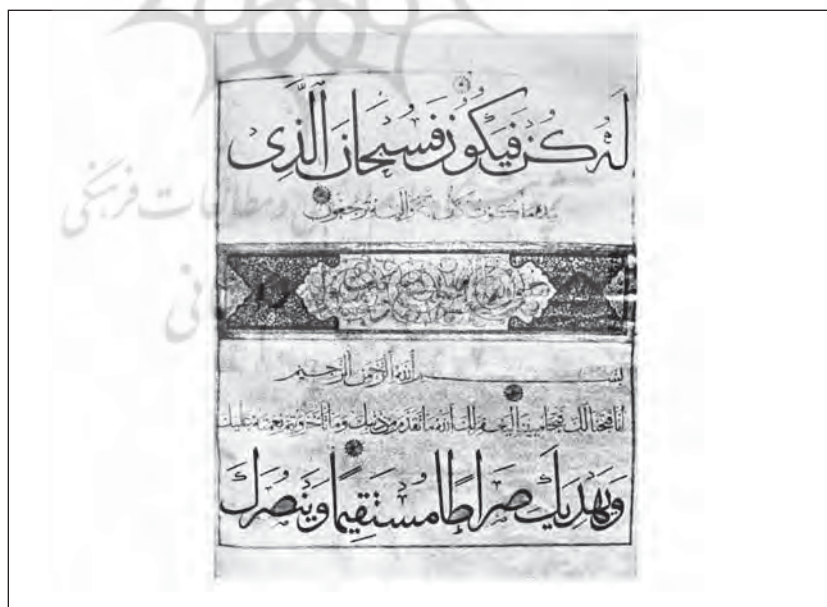 لَهُ كُنْ فَيَكُونُ فَسُبْحَانَ الَّذِى
بيده ملكوت كل شئ واليه ترجعون
و مطالعات فرهنگی
بسم الله الرحمن الرحيم
انا فتحنا لك فتحا مبينا ليغفر لك الله ما تقدم من ذنبك وما تاخر ويتم نعمته عليك
وَيَهْدِيَكَ صِرَاطًا مُسْتَقِيمًا وَيَنْصُرَكَ